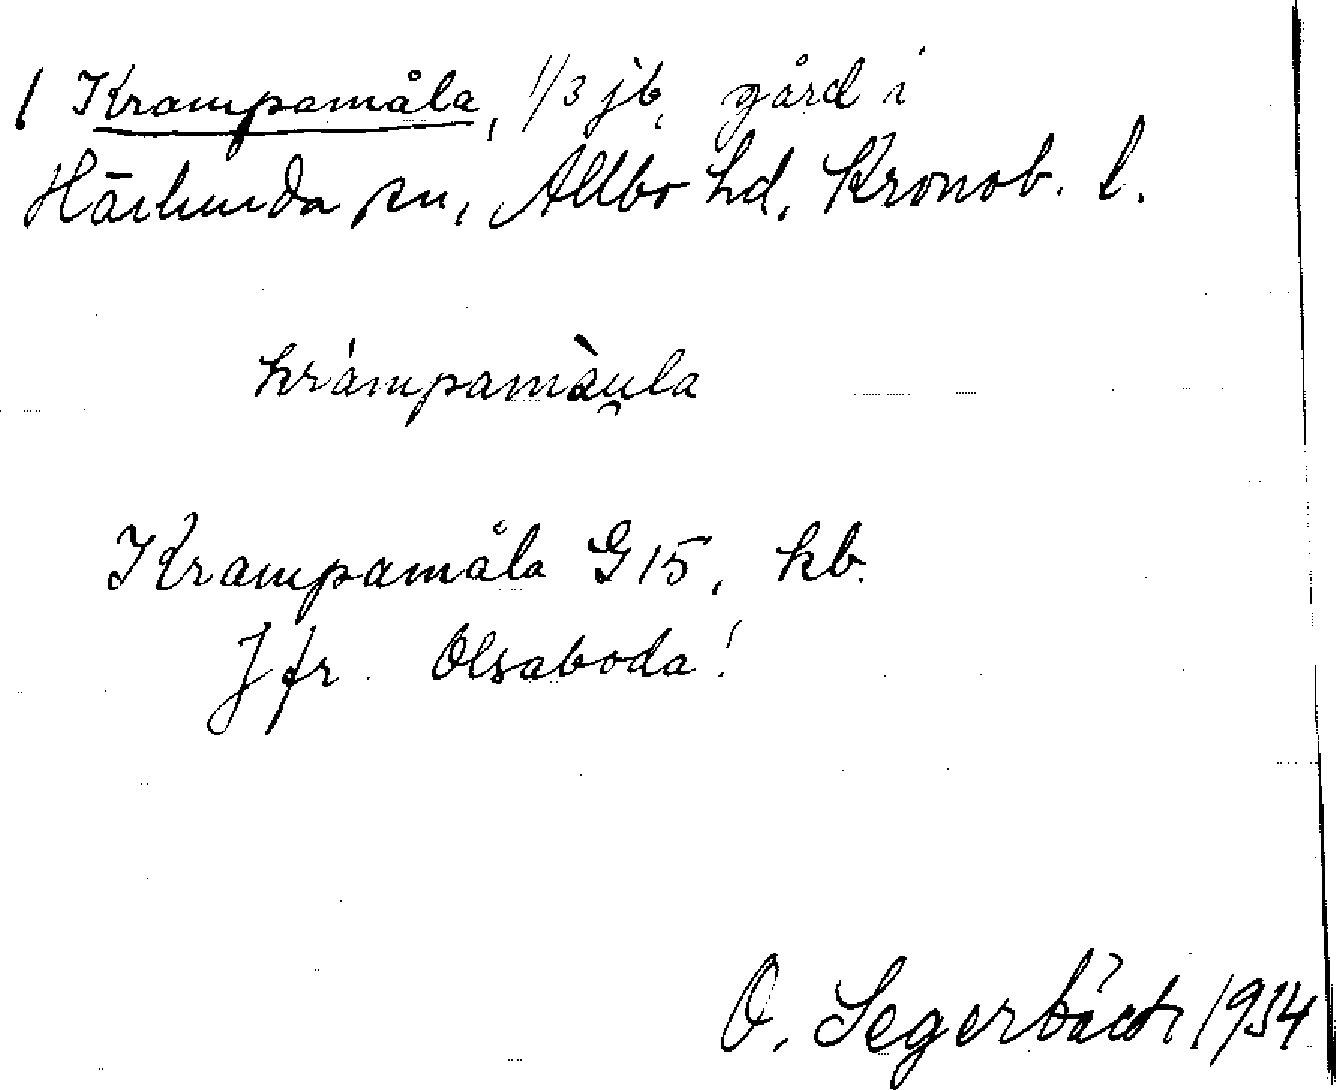 ( Krampamåla, 1/3 jb, gård i
Härlunda sn, Allbo hd, Kronob. l.
krámpamàu̯la
Krampamåla G15, kb.
Jfr. Olsaboda!
O. Segerbäck 1934